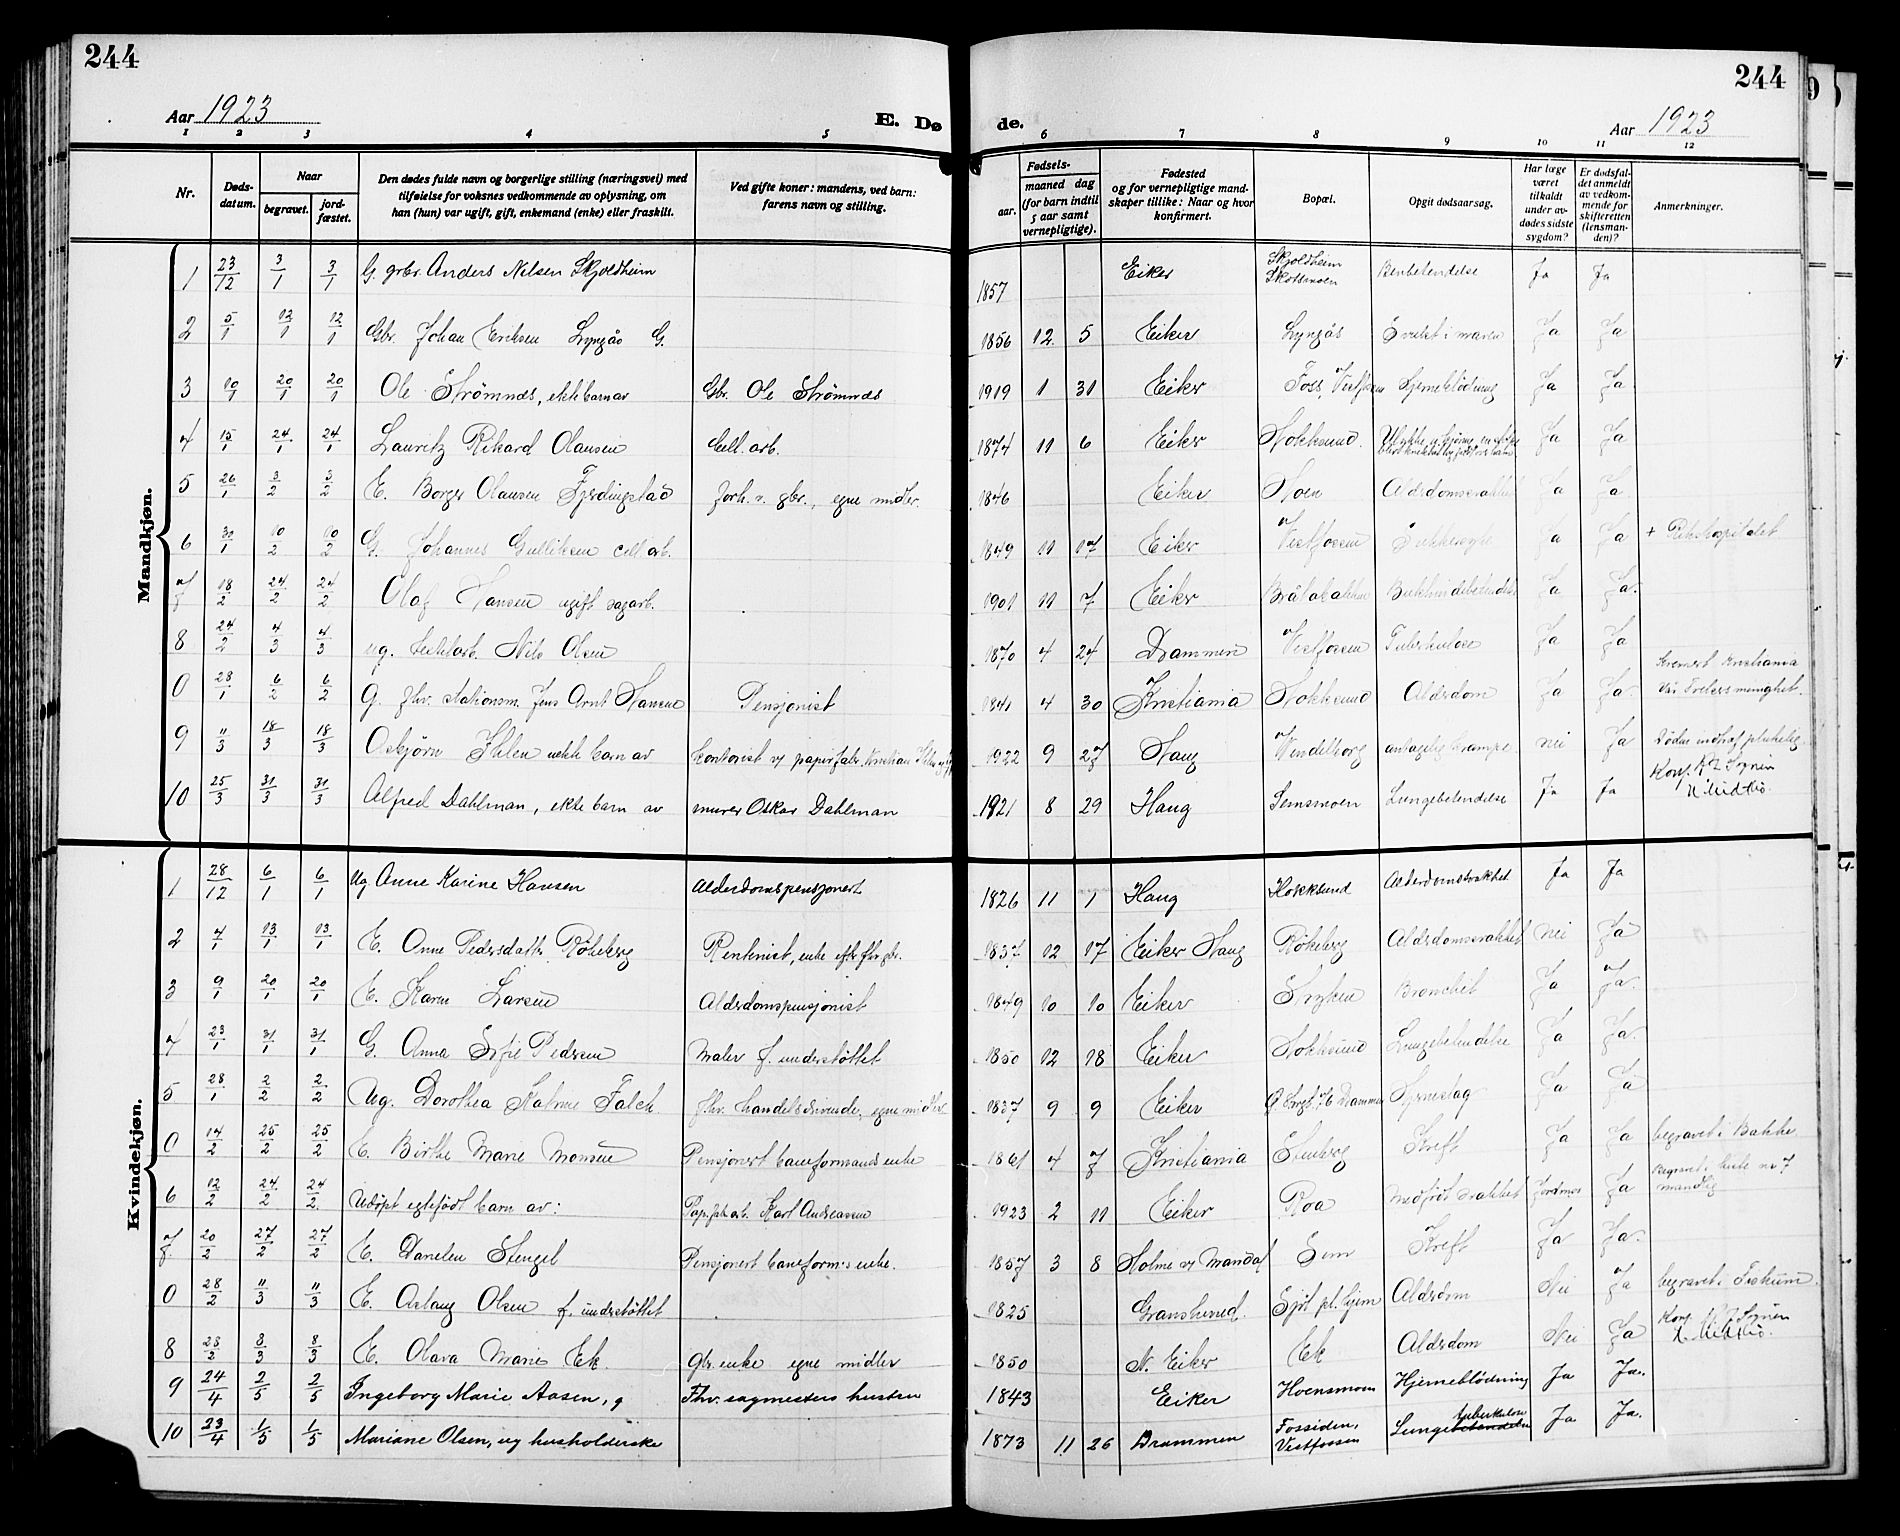 244
244
Aar 1923
E. Dø
de.
Aar 1923
1 2 3 4 5 6 7 8 9 10 11 12
Nr.
Døds-datum.
Naar
begravet.
jord-fæstet.
Den dødes fulde navn og borgerlige stilling (næringsvei) med
tilføielse for voksnes vedkommende av oplysning, om
han (hun) var ugift, gift, enkemand (enke) eller fraskilt.
Ved gifte koner: mandens, ved barn:
farens navn og stilling.
Fødsels-
aar.
maaned dag
(for barn indtil
5 aar samt
vernepligtige).
Fødested
og for vernepligtige mand-
skaper tillike: Naar og hvor
konfirmert.
Bopæl.
Opgit dødsaarsag.
Har læge
været
tilkaldt
under av-
dødes sidste
sygdom?
Er dødsfal-
det anmeldt
av vedkom-
mende for
skifteretten
(lensman-
den)?
Anmerkninger.
Mandkjøn.
1 23/12 3/1 3/1 G. grbr. Anders Nilsen Skjoldheim 1857 Eiker Skjoldheim Skotsmoen Benbetendelse Ja Ja
2 5/1 12/1 12/1 Gbr. Johan Eriksen Lyngås G. 1856 12 5 Eiker Lyngås Svulst i maven Ja Ja
3 10/1 20/1 20/1 Ole Strømnes, ekte barn av Gbr. Ole Strømnes 1919 1 31 Eiker Foss, Vestfossen Hjerneblödning Ja Ja
4 15/1 24/1 24/1 Lauritz Rikard Olausen Cell. arb. 1874 11 6 Eiker Hokksund. Ja Ja
5 26/1 3/2 3/2 E. Borger Olausen Fjerdingstad forh. v. gbr., egne midler. 1846 Eiker Hoen Alderdomssvakhet Ja Ja
6 30/1 10/2 10/2 G. Johannes Gulliksen cell arb. 1849 11 17 Eiker Vestfossen Sukkersyke Ja Ja + Rikshospitalet
7 18/2 24/2 24/2 Olaf Hansen ugift sagarb. 1901 11 7 Eiker Bråtabakken Bukhindebetendelse Ja Ja.
8 24/2 4/3 4/3 ug. Nils Olsen 1870 4 24 Drammen Vestfossen Tuberkulose Ja Ja
0 28/1 6/2 6/2 G. fhv. stationsm. Jens Arnt Hansen Pensjonist 1841 4 30 Kristiania Hokksund Alderdom Ja Ja Kremert Kristiania Vår Frelsers menighet.
9 11/3 18/3 18/3 Asbjörn Ihlen ekte barn av kontorist v/ papirfabr. Kristian Ihlen 1922 9 27 Haug Vendelborg antagelig krampe. nei Ja Döden indtraf plutselig.
10 25/3 31/3 31/3 Alfred Dahlman, ekte barn av murer Oskar Dahlman 1921 8 29 Haug Semsmoen Lungebetendelse Ja Ja Konf.
Kvindekjøn.
1 28/12 6/1 6/1 Ug. Anne Karine Hansen Alderdomspensjonert 1826 11 1 Haug Hokksund Alderdomssvakhet Ja Ja
2 4/1 13/1 13/1 E. Anne Pedersdatter Rökeberg Rentenist, enke efter fhv. gbr. 1837 12 17 Eiker Haug Rökeberg Alderdomssvakhet nei Ja
3 9/1 20/1 20/1 E. Karen Larsen Alderdomspensjonist 1849 10 10 Eiker Stryken Bronchit Ja Ja.
4 23/1 31/1 31/1 G. Anna Sofie Pedersen Maler f. understöttet 1850 12 18 Eiker Hokksund Lungebetendelse Ja Ja.
5 28/1 2/2 2/2 Ug. Dorothea Katrine Falch fhv. handelsdrivende, egne midler 1837 9 9 Eiker Drammen Hjerneslag Ja Ja
0 14/2 25/2 25/2 E. Birthe Marie Monsen Pensjonert baneformands enke 1861 4 7 Kristiania Stenberg Kreft Ja Ja begravet i Bakke
6 12/2 24/2 24/2. Udöpt egtefödt barn av: Pap.fabr.arb. Karl Andreassen 1923 2 11 Eiker Roa Medfödt svakhet Jordmor Ja Begravet i kiste nr 7 mandlig
7 20/2 27/2 27/2 E. Danelen Stengel Pensjonert baneform.s enke. 1857 3 8 Holme v/ Mandal Sem Kreft Ja Ja.
0 28/2 11/3 11/3 E. Aslaug Olsen f. understöttet 1825 Gransherred. Alderdom Nei Ja begravet i Fiskum.
8 28/2 8/3 8/3 E. Olava Marie Ek. gbr. enke egne midler 1850 N. Eiker Ek Alderdom Nei Ja Konf.
9 24/4 2/5 2/5 Ingeborg Marie Aasen, g Fhv. sagmesters hustru 1843 Eiker Hoensmoen Hjerneblødning Ja Ja.
10 23/4 1/5 1/5 Mariane Olsen, ug husholderske 1873 11 26 Drammen Fossiden, Vestfossen Lungebetendelse tuberkulose Ja Ja.